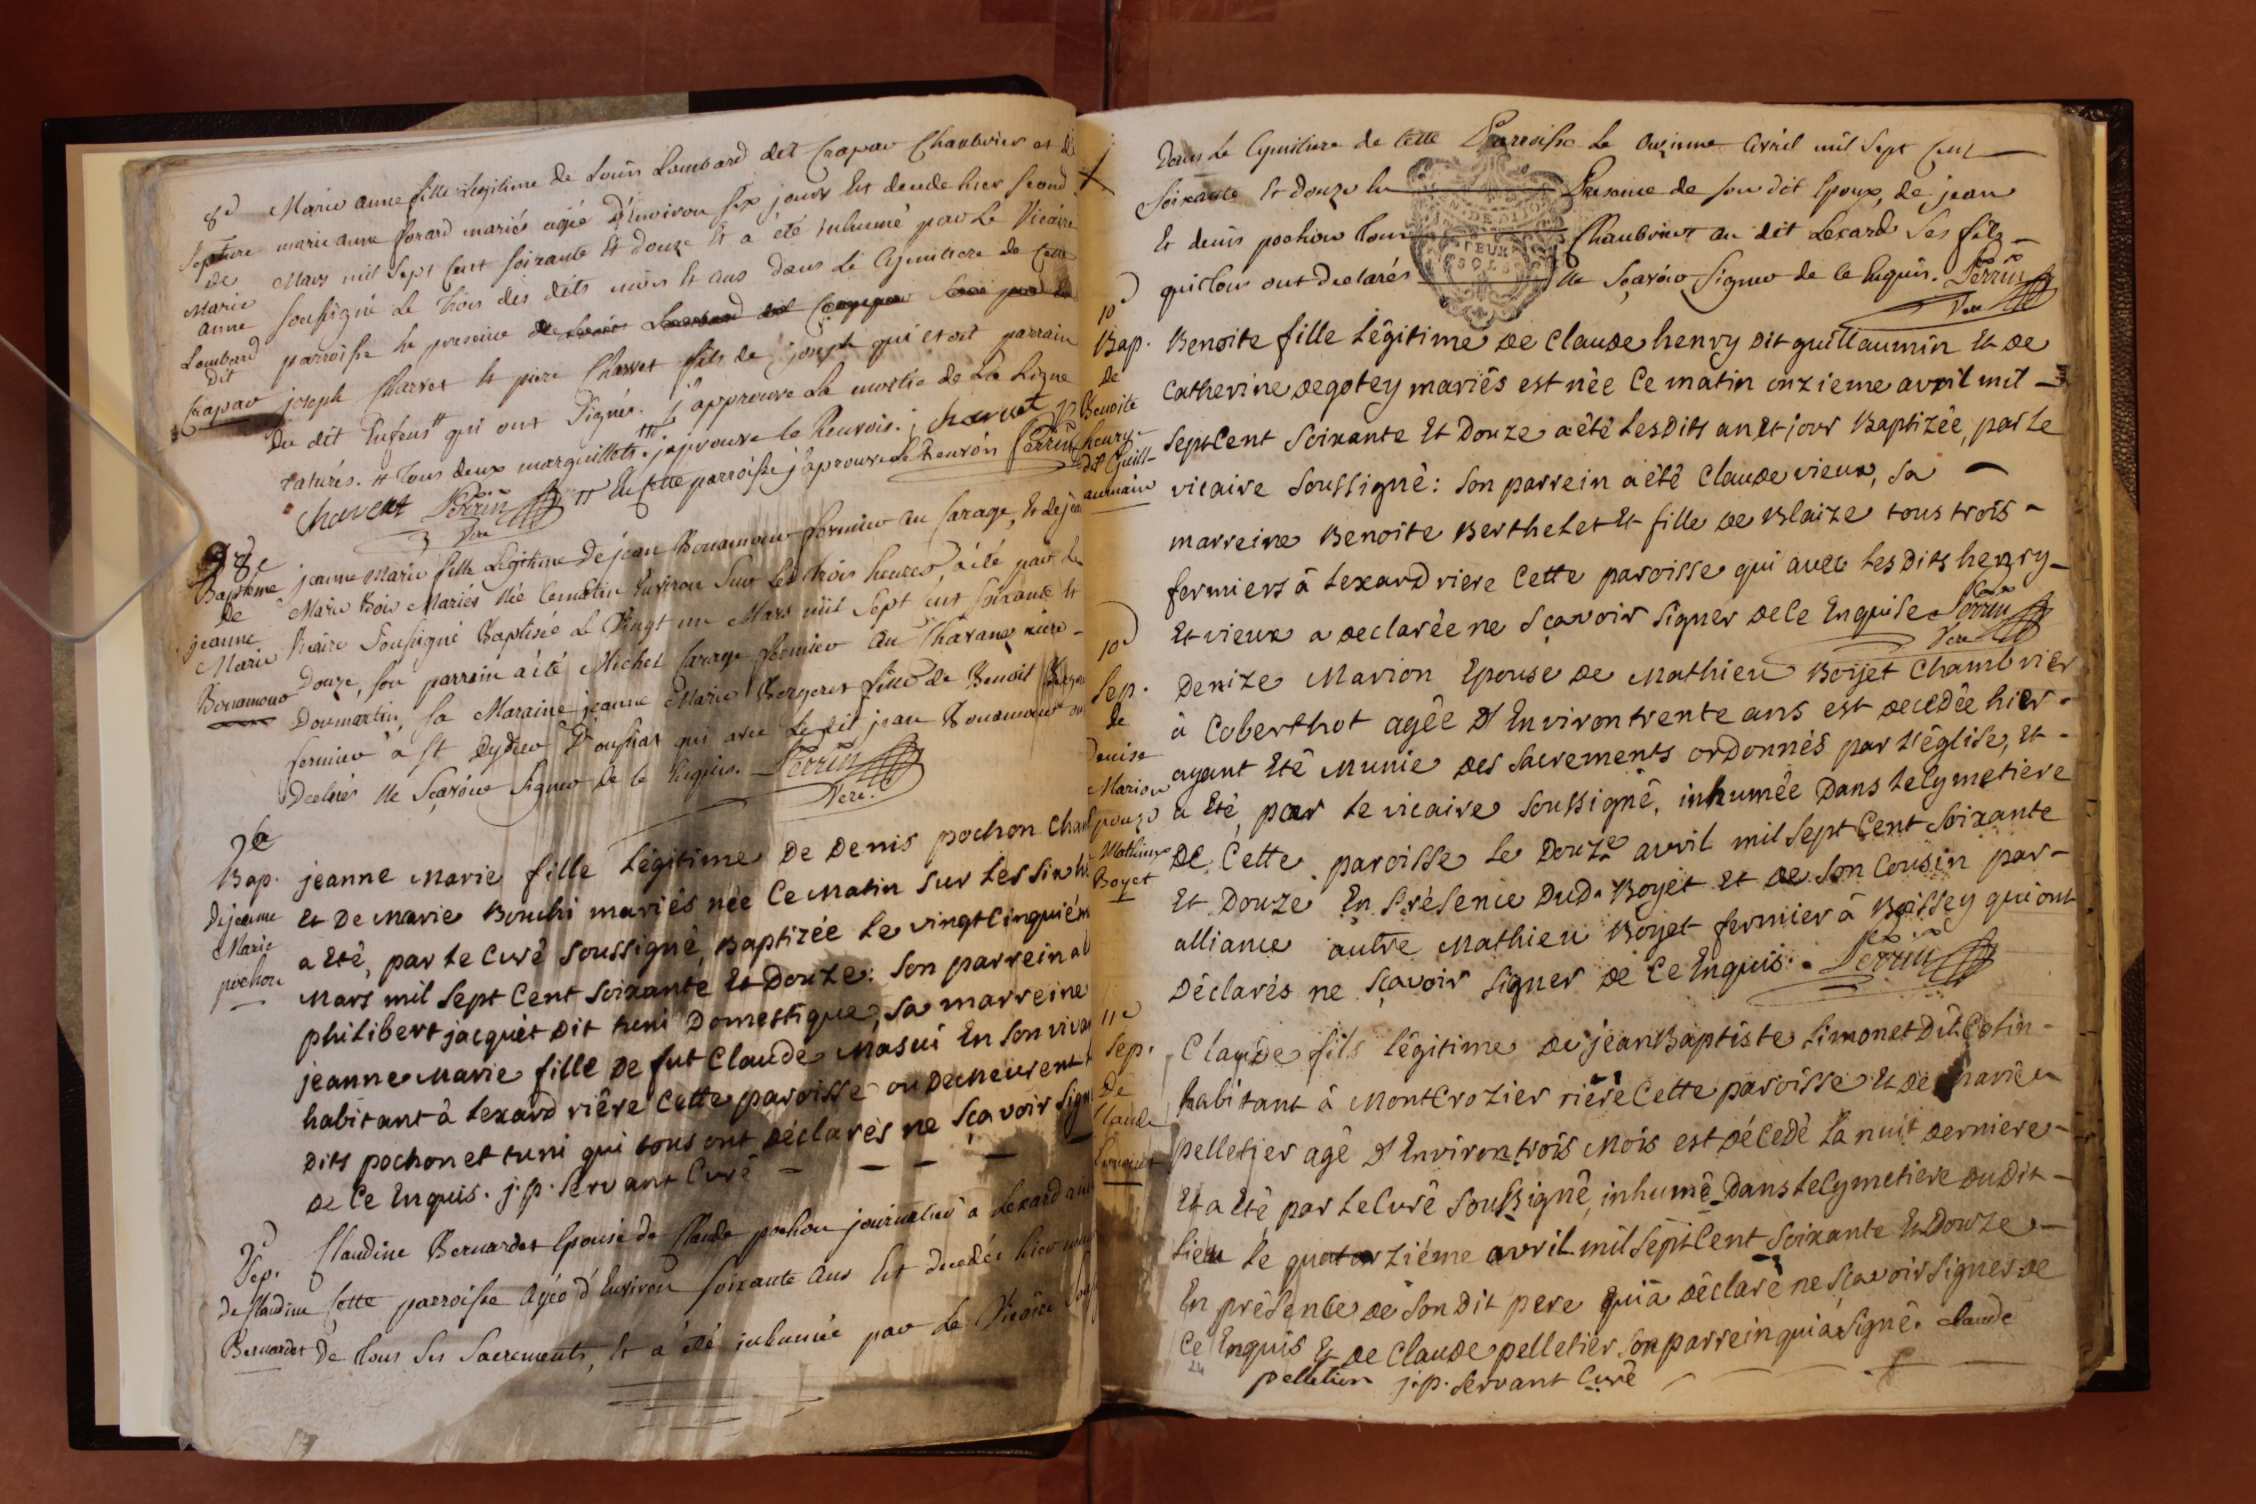 8e
Sepulture
de
Marie
anne
Lombard
dit
Crapau
Marie anne fille légitime de Louis Lombard dit Crapau Chambrier et de
marie anne mariés agée d'Environ six jours Est decedé hier second
Mars mil sept Cent soixante Et douze Et a été inhumé par Le Vicaire
soussigné Le trois des dits mois Et ans dans Le Cymitiere de Cette
parroisse En presence de
joseph Charvet Et piere Charvet fils de joseph qui etoit parrain
du dit Enfent qui ont Signés. j'approuve La moitie de La Ligne
raturés. Et tous deux marguilliets. j'aprouve le Renvois. charvet
charvet Perrin Vire En Cette parroisse j'aprouve Le Renvoi Perrin
8e
Baptême
de
jeanne
Marie
Bonamour
jeanne Marie fille Légitime de jean Bonamour fermier au farage, Et de
Marie Bois Mariés Née Cematin Environ Sur Les trois heures, a été par Le
Vicaire Soussigné Baptisée Le Vingt un Mars mil Sept cent soixante Et
Douze, son parrain a été Michel farage fermier au Charanes riere
Domartin, sa Maraine jeanne Marie Bergeret fille de Benoit
fermier à St Dydier D'oussiat qui avec Le dit jean Bonamour
Declarés Ne Sçavoir Signer de ce Enquis. Perrin
Vire.
9e
Bap.
De jeanne
Marie
pochon
jeanne Marie fille Légitime De Denis pochon
Et De Marie Bouchi mariés née Ce Matin sur Les six
a Eté, par Le Curé soussigné, Baptizée Le vingt Cinquiém
Mars mil sept Cent soixante Et Douze: son parrein a
philibert jacquet Dit tuni Domestique, sa marreine
jeanne Marie fille De fut Claude Masuï En son viva
habitant à Lexard riére Cette paroisse ou Demeurent
Dits pochon et tuni qui tous ont Déclarés ne Sçavoir Sign
De Ce Enquis. j. p. Servant Curé
9e
Sep.
de Claudine
Bernardet
Claudine Bernardet Epouse de Claude pochon journalier a Lexard
Cette parroisse Agée d'Environ soixante ans Est decedée hier
De tous Ses Sacrements, Et a été inhumée par Le Vicaire
Dans Le Cymitiere de Cette Parroisse Le onzieme Avril mil Sept Cent
Soixante Et douze En Presence de son dit Epoux, de jean
Et denis pochon tous Chambriers au dit Lexard Ses fils
qui tous ont Declarés Ne Sçavoir Signer de ce Enquis. Perrin
Vire
10e
Bap.
de
Benoite
henry
dit Guill-
aumain
Benoite fille Légitime De Claude henry Dit guillaumin Et De
Catherine Degotey mariés est née Ce matin onzieme avril mil
sept Cent Soixante Et Douze a été Les Dits an Et jour Baptizée, par Le
vicaire Soussigné: Son parrein a été Claude vieux, Sa
marreine Benoite Berthelet Et fille De Blaize tous trois
fermiers à Lexard riere Cette paroisse qui avec Les Dits henry
Et vieux a Declarée ne Sçavoir Signer De Ce Enquise Perrin
Vire
10e
Sep.
de
Denise
Marion
Epouse
Mathieu
Boyet
Denize Marion Epouse De Mathieu Boyet Chambrier
à Coberthot agée D'Environ trente ans est Decedée hier
ayant Eté Munie Des Sacrements ordonnés par L'église, Et
a Eté, par Le vicaire Soussigné, inhumée Dans Le Cymetiere
De Cette paroisse Le Douze avril mil Sept Cent Soixante
Et Douze En Présence Dud. Boyet Et De Son Cousin par
alliance autre Mathieu Boyet fermier à Boissey qui ont
Déclarés ne Sçavoir Signer De Ce Enquis. Perrin
11e
Sep.
De
Claude
Simonet
Claude fils Légitime De jean Baptiste Simonet Dit Colin
habitant à Montcrozier riére Cette paroisse Et De Marie
pelletier agé D'Environ trois Mois est Décedé La nuit Derniere
Et a Eté par Le Curé Soussigné, inhumé Dans Le Cymetiere Dudit
Lieu Le quatorziéme avril mil Sept Cent Soixante Et Douze
En présence De Son Dit pere qui a Déclaré ne Sçavoir Signer De
Ce Enquis Et De Claude pelletier Son parrein qui a Signé. claude
pelletier j. p. Servant Curé
24